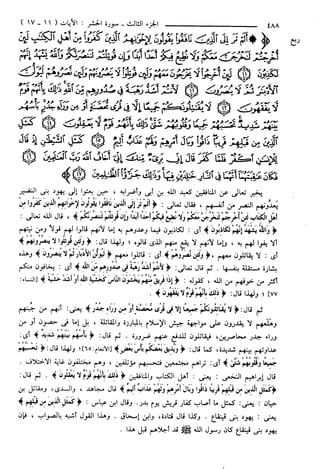 ٤٨٨ الجزء الثالث - سورة الحشر : الآيات ( ١١ - ١٧ )
ربع
﴿ ۞ أَلَمْ تَرَ إِلَى الَّذِينَ نَافَقُوا يَقُولُونَ لِإِخْوَانِهِمُ الَّذِينَ كَفَرُوا مِنْ أَهْلِ الْكِتَابِ لَئِنْ
أُخْرِجْتُمْ لَنَخْرُجَنَّ مَعَكُمْ وَلَا نُطِيعُ فِيكُمْ أَحَدًا أَبَدًا وَإِن قُوتِلْتُمْ لَنَنصُرَنَّكُمْ وَاللَّهُ يَشْهَدُ إِنَّهُمْ
لَكَاذِبُونَ ۝ لَئِنْ أُخْرِجُوا لَا يَخْرُجُونَ مَعَهُمْ وَلَئِن قُوتِلُوا لَا يَنصُرُونَهُمْ وَلَئِن نَّصَرُوهُمْ لَيُوَلُّنَّ
الْأَدْبَارَ ثُمَّ لَا يُنصَرُونَ ۝ لَأَنتُمْ أَشَدُّ رَهْبَةً فِي صُدُورِهِم مِّنَ اللَّهِ ذَٰلِكَ بِأَنَّهُمْ قَوْمٌ
لَّا يَفْقَهُونَ ۝ لَا يُقَاتِلُونَكُمْ جَمِيعًا إِلَّا فِي قُرًى مُّحَصَّنَةٍ أَوْ مِن وَرَاءِ جُدُرٍ بَأْسُهُم
بَيْنَهُمْ شَدِيدٌ تَحْسَبُهُمْ جَمِيعًا وَقُلُوبُهُمْ شَتَّىٰ ذَٰلِكَ بِأَنَّهُمْ قَوْمٌ لَّا يَعْقِلُونَ ۝
كَمَثَلِ الَّذِينَ مِن قَبْلِهِمْ قَرِيبًا ذَاقُوا وَبَالَ أَمْرِهِمْ وَلَهُمْ عَذَابٌ أَلِيمٌ ۝ كَمَثَلِ الشَّيْطَانِ إِذْ قَالَ
لِلْإِنسَانِ اكْفُرْ فَلَمَّا كَفَرَ قَالَ إِنِّي بَرِيءٌ مِّنكَ إِنِّي أَخَافُ اللَّهَ رَبَّ الْعَالَمِينَ ۝
فَكَانَ عَاقِبَتَهُمَا أَنَّهُمَا فِي النَّارِ خَالِدَيْنِ فِيهَا وَذَٰلِكَ جَزَاءُ الظَّالِمِينَ ۝ ﴾
يخبر تعالى عن المنافقين كعبد الله بن أبي وأضرابه ، حين بعثوا إلى يهود بني النضير
يَعِدُونهم النصر من أنفسهم ، فقال تعالى : ﴿ ألم تر إلى الذين نافقوا يقولون لإخوانهم الذين كفروا من
أهل الكتاب لئن أخرجتم لنخرجن معكم ولا نطيع فيكم أحداً أبداً وإن قوتلتم لننصرنكم ﴾ ، قال الله تعالى :
﴿ والله يشهد إنهم لكاذبون ﴾ أي : لكاذبون فيما وعدوهم به إما لأنهم قالوا لهم قولاً ومن نيتهم
ألا يفوا لهم به ، وإما لأنهم لا يقع منهم الذي قالوه ، ولهذا قال : ﴿ ولئن قوتلوا لا ينصرونهم ﴾
أي : لا يقاتلون معهم ، ﴿ ولئن نصروهم ﴾ أي : قاتلوا معهم ﴿ ليولن الأدبار ثم لا ينصرون ﴾ وهذه
بشارة مستقلة بنفسها . ثم قال تعالى : ﴿ لأنتم أشد رهبة في صدورهم من الله ﴾ أي : يخافون منكم
أكثر من خوفهم من الله ، كقوله : ﴿ إذا فريق منهم يخشون الناس كخشية الله أو أشد خشية ﴾ [النساء :
٧٧] ، ولهذا قال : ﴿ ذلك بأنهم قوم لا يفقهون ﴾ .
ثم قال : ﴿ لا يقاتلونكم جميعاً إلا في قرى محصنة أو من وراء جدر ﴾ يعني : أنهم من جبنهم
وهلعهم لا يقدرون على مواجهة جيش الإسلام بالمبارزة والمقاتلة ، بل إما في حصون أو من
وراء جدر محاصرين، فيقاتلون للدفع عنهم ضرورة . ثم قال: ﴿ بأسهم بينهم شديد ﴾ أي:
عداوتهم بينهم شديدة، كما قال: ﴿ ويذيق بعضكم بأس بعض ﴾ [الأنعام: ٦٥]، ولهذا قال: ﴿ تحسبهم
جميعاً وقلوبهم شتى ﴾ أي: تراهم مجتمعين فتحسبهم مؤتلفين ، وهم مختلفون غاية الاختلاف .
قال إبراهيم النخعي : يعني : أهل الكتاب والمنافقين ﴿ ذلك بأنهم قوم لا يعقلون ﴾ . ثم قال:
﴿ كمثل الذين من قبلهم قريباً ذاقوا وبال أمرهم ولهم عذاب أليم ﴾ قال مجاهد ، والسدي، ومقاتل بن
حيان : يعني: كمثل ما أصاب كفار قريش يوم بدر. وقال ابن عباس : ﴿ كمثل الذين من قبلهم ﴾
يعني : يهود بني قينقاع . وكذا قال قتادة، وابن إسحاق . وهذا القول أشبه بالصواب ، فإن
يهود بني قينقاع كان رسول الله ﷺ قد أجلاهم قبل هذا .